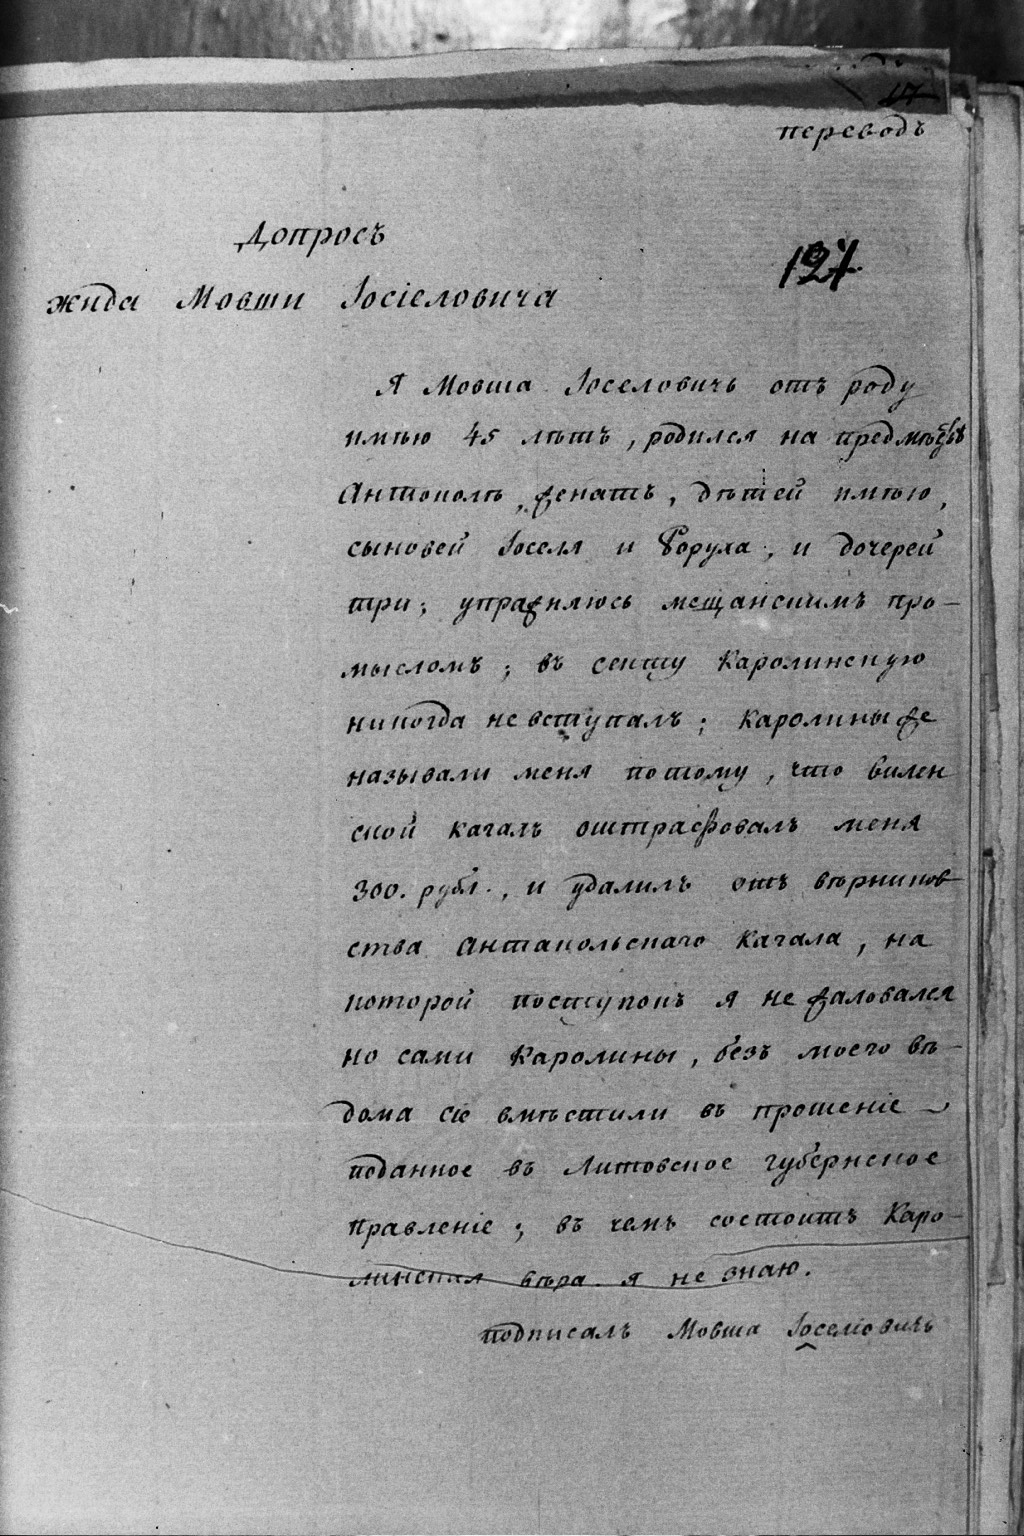 17
переводъ
Допросъ
127
жида Мовши Іосіеловича
Я Мовша Іоселовичь отъ роду
имѣю 45 лѣтъ, родился на предмѣстьѣ
Антополѣ, женатъ, дѣтей имѣю,
сыновей Іоселя и Боруха, и дочерей
три; упражняюсь мещанскимъ про-
мысломъ; въ секту Каролинскую
никогда не вступалъ; Каролины же
называли меня потому, что вилен
ской кагалъ оштрафовалъ меня
300. рубл., и удалилъ отъ вѣрников
ства Антапольскаго Кагала, на
которой поступокъ я не жаловался
но сами Каролины, безъ моего вѣ-
дома сіе вмѣстили въ прошеніе
поданное въ Литовское губернское
правленіе; въ чемъ состоитъ Каро-
линская вѣра я не знаю.
подписалъ Мовша Іоселіовичь